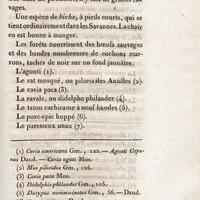 vages.
Une espèce de biche, à pieds courts, qui se
tient ordinairement dans les Savannes. La chair
en est bonne à manger.
Les forêts nourrissent des bœufs sauvages
et des bandes nombreuses de cochons mar-
rons, tachés de noir sur un fond jaunâtre.
L'agouti (1).
Le rat musqué, ou piloris des Antilles (2).
Le cavia paca (3).
La ravale, ou didelphe philander (4).
Le tatou cachicame à neuf bandes (5).
Le porc-épic huppé (6).
Le paresseux unau (7);
(1) Cavia americana Gm., 122. — Agouti Caya-
nus Daud. — Cavia aguti Mus.
(2) Mus pilorides Gm., 126.
(3) Cavia paca Mus.
(4) Didelphis philander Gm., 105.
(5) Dasypus novemcinctus Gm., 56. — Daud.